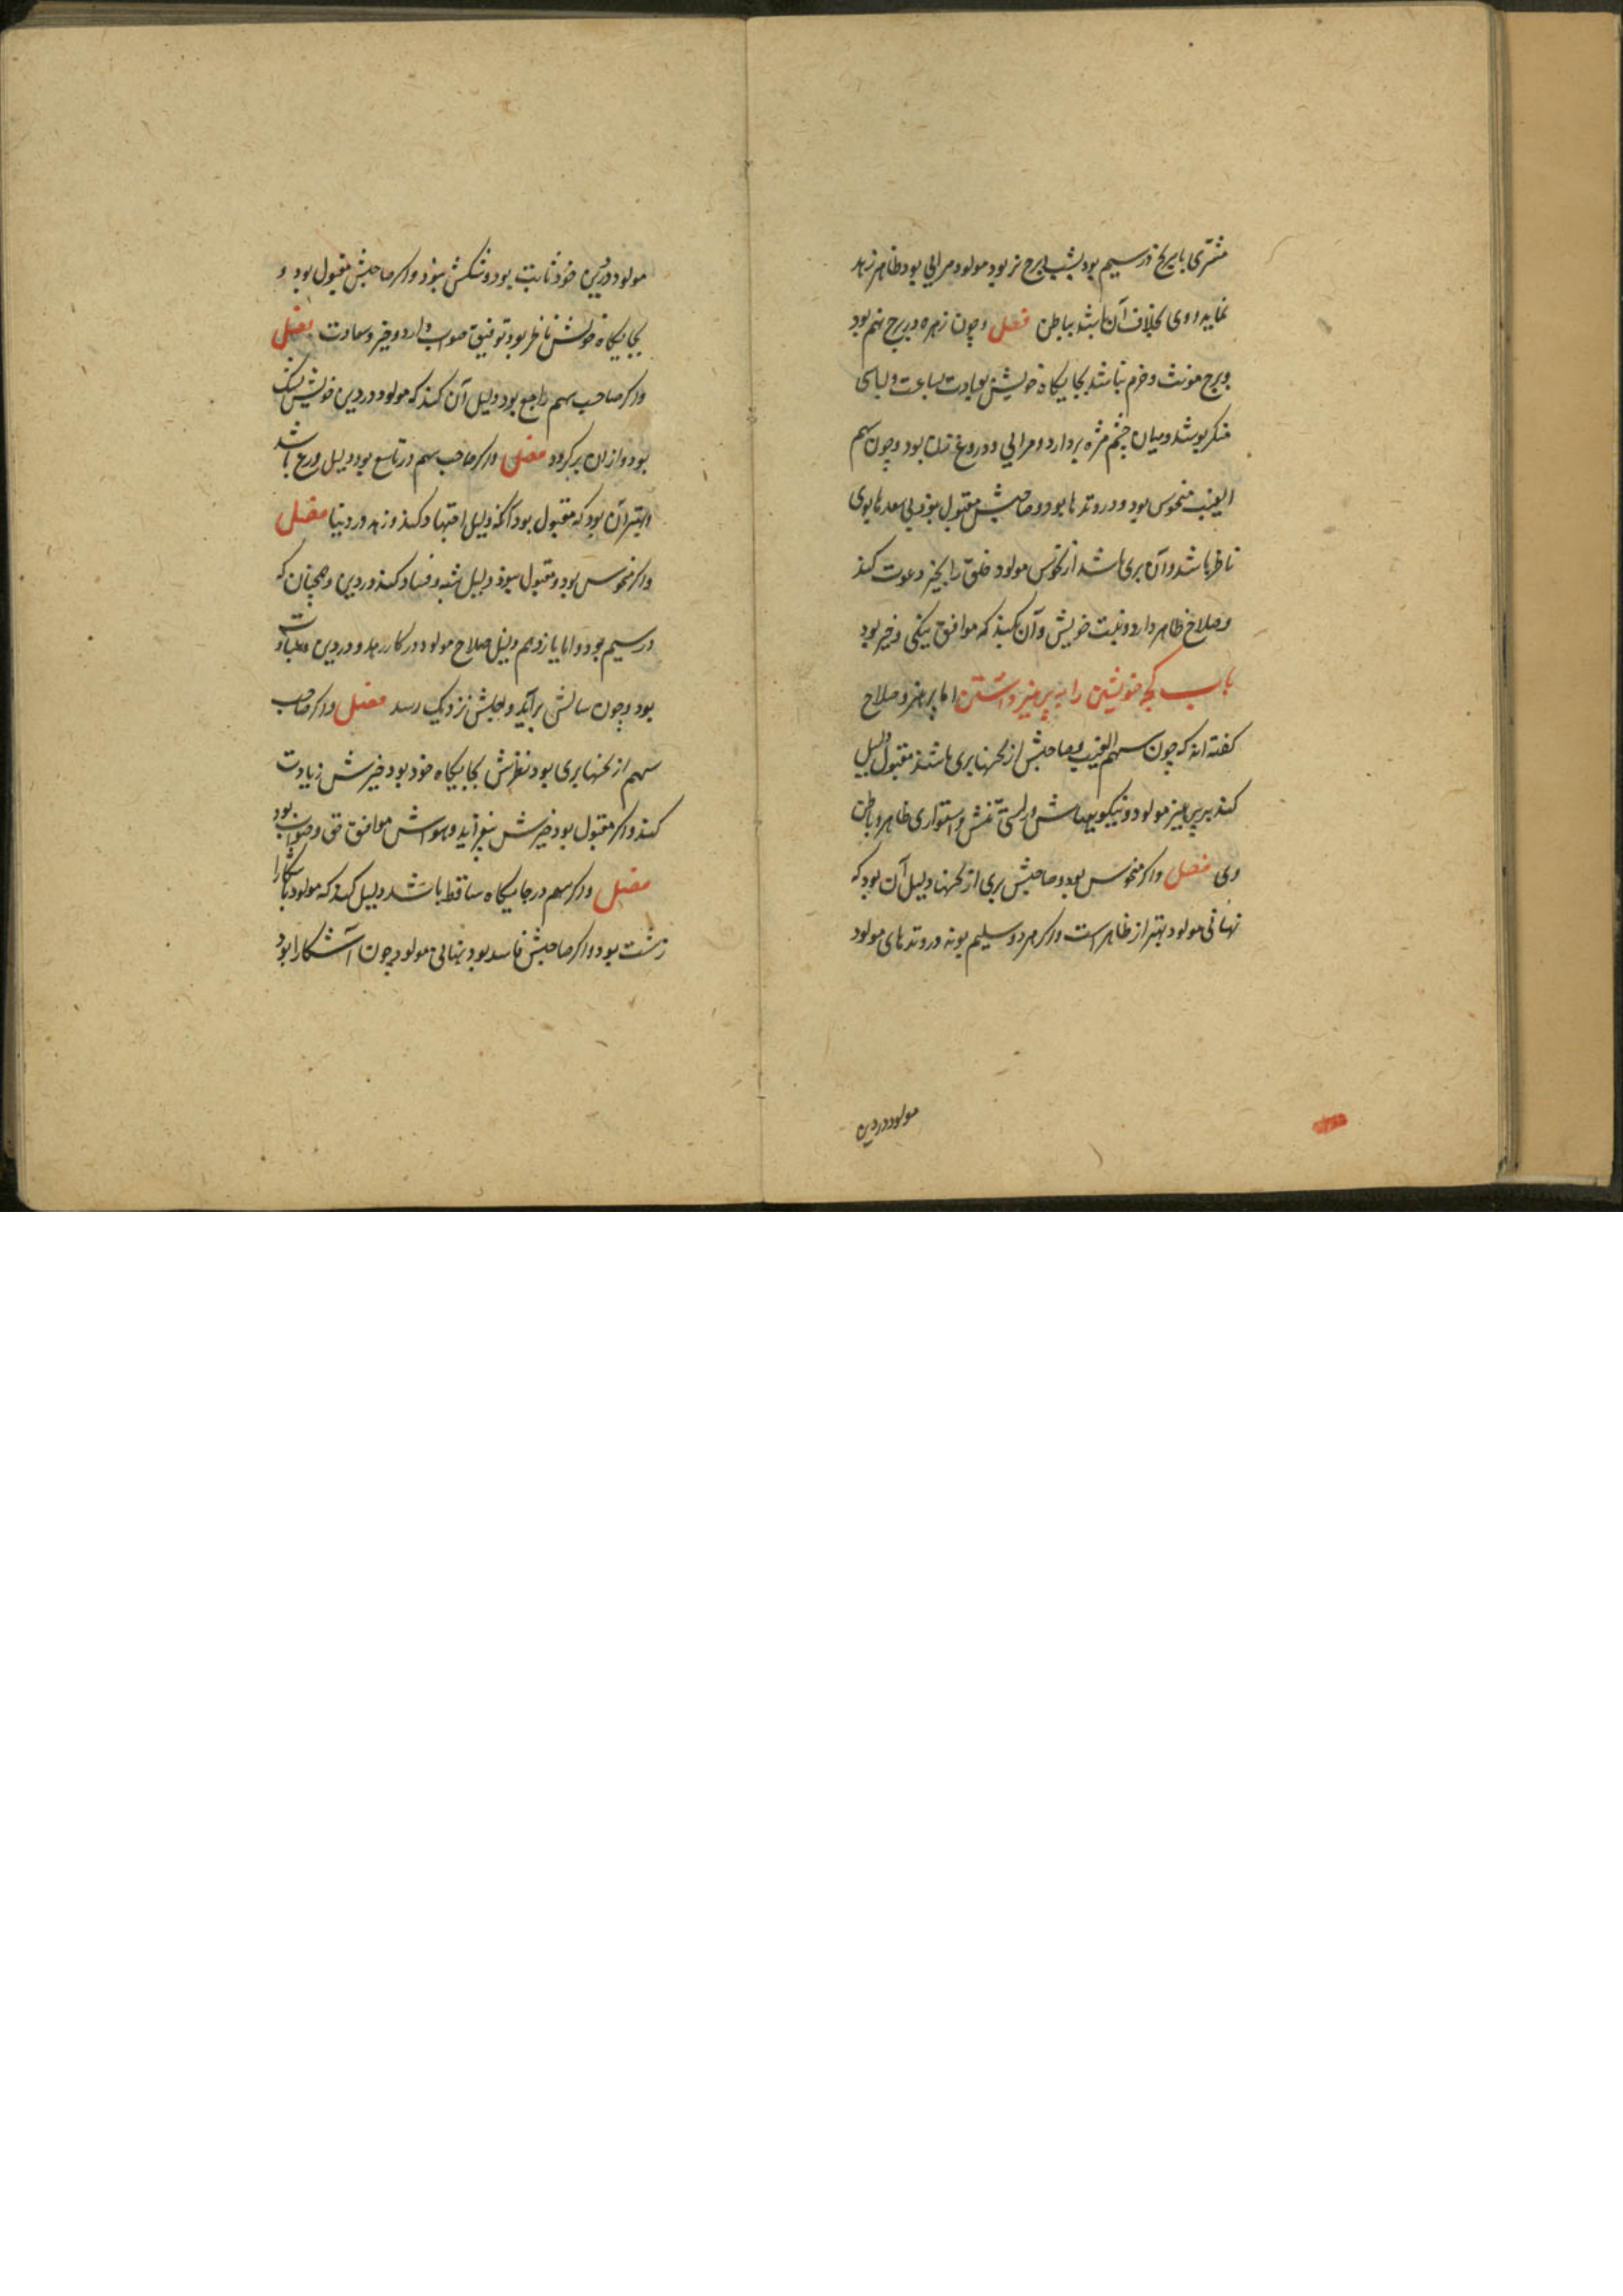 مشتری با مریخ در سیم بود بشب ببرج نر بود مولود مرایی بود ظاهر زهد
نماید و وی بخلاف آن باشد بباطن فصل و چون زهره در برج نهم بود
و برج مونث و خرم نباشد بجایگاه خویش بعبادت بساعت و لباسی
منکر بپوشد و میان چشم مژه بردارد و مرایی و دروغ زن بود و چون سهم
الغیب منحوس بود و در وتدها بود و صاحبش مقبول بود بی سعدها بوی
ناظر باشد و آن بری باشد از نحوس مولود خلق را بخیر دعوت کند
و صلاح ظاهر دارد و نیت خویش و آن نکند که موافق نیکی و خیر بود
باب کجا خویشتن را به پرهیز داشتن اما پرهیز و صلاح
گفته اند که چون سهم الغیب و صاحبش از نحسها بری باشند مقبول دلیل
کند بر پرهیز مولود و نیکویی و درستی تنش و استواری ظاهر و باطن
وی فصل و اگر منحوس بود و صاحبش بری از نحسها دلیل آن بود که
نهانی مولود بهتر از ظاهر است و اگر هر دو سلیم بوند در وتدهای مولود
مولود در دین
مولود در دین خود ثابت بود و شکش نبود و اگر صاحبش مقبول بود و
بجایگاه خویش ناظر بود توفیق صواب دارد و خیر و سعادت فصل
و اگر صاحب سهم راجع بود دلیل آن کند که مولود در دین خویش بشک
بود و از آن برگردد فصل و اگر صاحب سهم در تاسع بود دلیل ورع باشد
و بهتر آن بود که مقبول بود آنگه دلیل اجتهاد کند و زهد در دنیا فصل
و اگر منحوس بود و مقبول نبود دلیل شبه و فساد کند در دین و همچنان که
در سیم بود و اما یازدهم دلیل صلاح مولود در کار زهد و در دین و عبادت
بود و چون سالش برآید و اجلش نزدیک رسد فصل و اگر صاحب
سهم از نحسها بری بود نظرش بجایگاه خود بود خیرش زیادت
کند و اگر مقبول بود خیرش بیفزاید و هواش موافق حق و صواب بود
فصل و اگر سهم در جایگاه ساقط باشد دلیل کند که مولود باشکارا
زشت بود و اگر صاحبش فاسد بود بنهانی مولود چون آشکارا بود